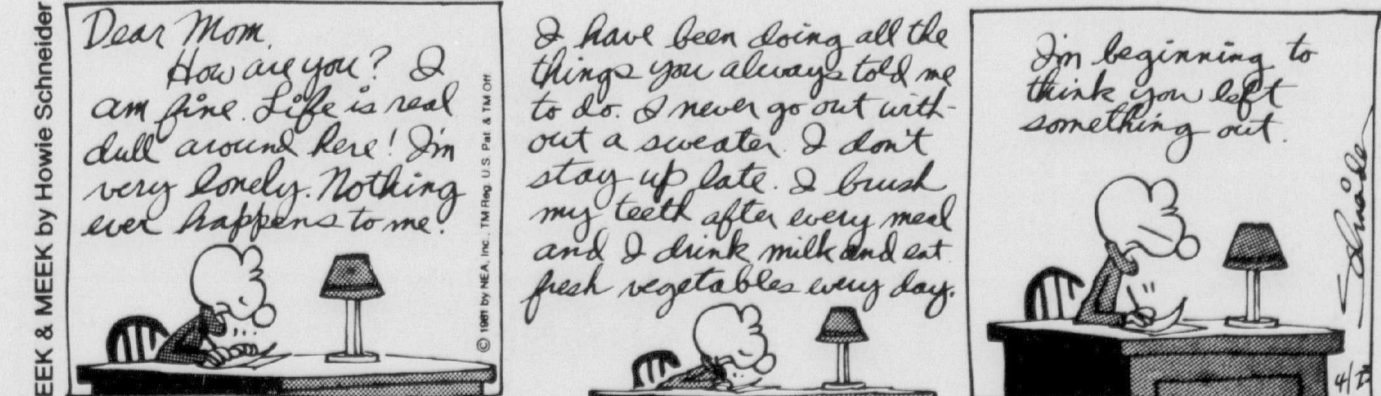 EEK & MEEK by Howie Schneider
Dear Mom,
How are you? I
am fine. Life is real
dull around here! I'm
very lonely. Nothing
ever happens to me!
© 1981 by NEA, Inc., TM Reg. U.S. Pat. & TM Off
I have been doing all the
things you always told me
to do. I never go out with-
out a sweater. I don't
stay up late. I brush
my teeth after every meal
and I drink milk and eat
fresh vegetables every day.
I'm beginning to
think you left
something out.
Schneider